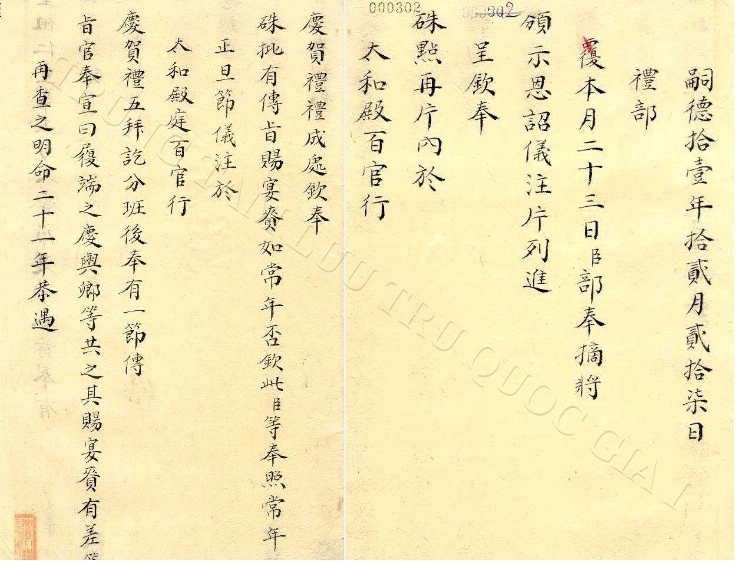 嗣德拾壹年拾貳月貳拾柒日
禮部
覆本月二十三日臣部奉摘將
頒示恩詔儀注片列進
呈欽奉
硃點再片內於
太和殿百官行
慶賀禮禮成處欽奉
硃批有傳旨賜宴賚如常年否欽此臣等奉照常年
正旦節儀注於
太和殿庭百官行
慶賀禮五拜訖分班後奉有一節傳
旨官奉宣曰履端之慶與卿等共之其賜宴賚有差
再查之明命二十一年恭遇
000302
000302
TRUNG TÂM LƯU TRỮ QUỐC GIA I